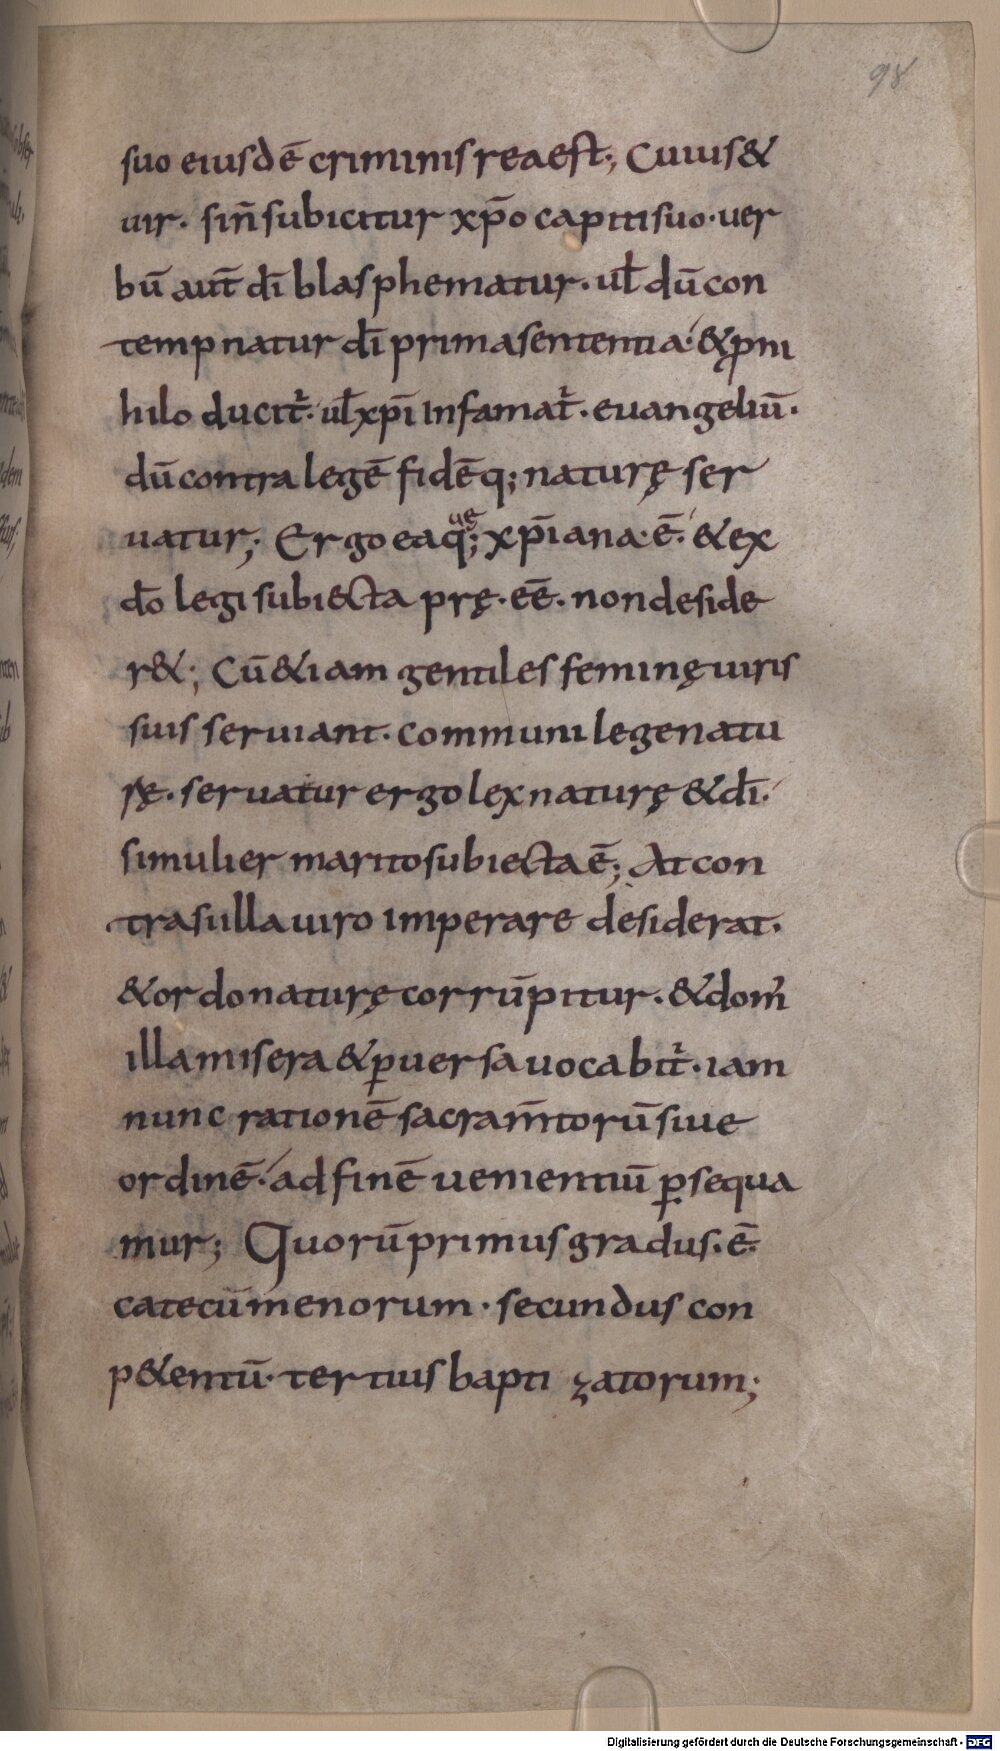 98
suo eiusdē criminis rea est; Cuius &
uir. sin̄ subicitur xp̄o capiti suo. uer
bū aut̄ dī blasphematur. ul̄ dū con
tempnatur dī prima sententia. & p ni
hilo ducit̄. ul̄ xp̄i Infamat̄. euangeliū.
dū contra legē fidēq; naturę ser
uatur; Ergo ea q̄; quę xp̄iana. ē. & ex
dō legi subiecta prę. eē. non deside
r&; Cū & iam gentiles feminę uiris
suis seruiant. communi lege natu
rę. seruatur ergo lex naturę & dī.
si mulier marito subiecta ē; At con
tra si illa uiro imperare desiderat.
& ordo naturę corrūpitur. & dom̄
illa misera & puersa uocabit̄. iam
nunc rationē sacram̄torū siue
ordinē. ad finē uenientiū psequa
mur; Quorū primus gradus. ē.
catecūmenorum. secundus con
p&entū. tertius bapti zatorum;
Digitalisierung gefördert durch die Deutsche Forschungsgemeinschaft - DFG